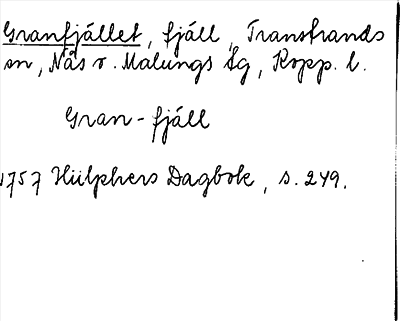 Granfjället, fjäll, Transtrands
sn, Nås o. Malungs tg, Kopp. l.
Gran-fjäll
1757 Hülphers Dagbok, s. 249.